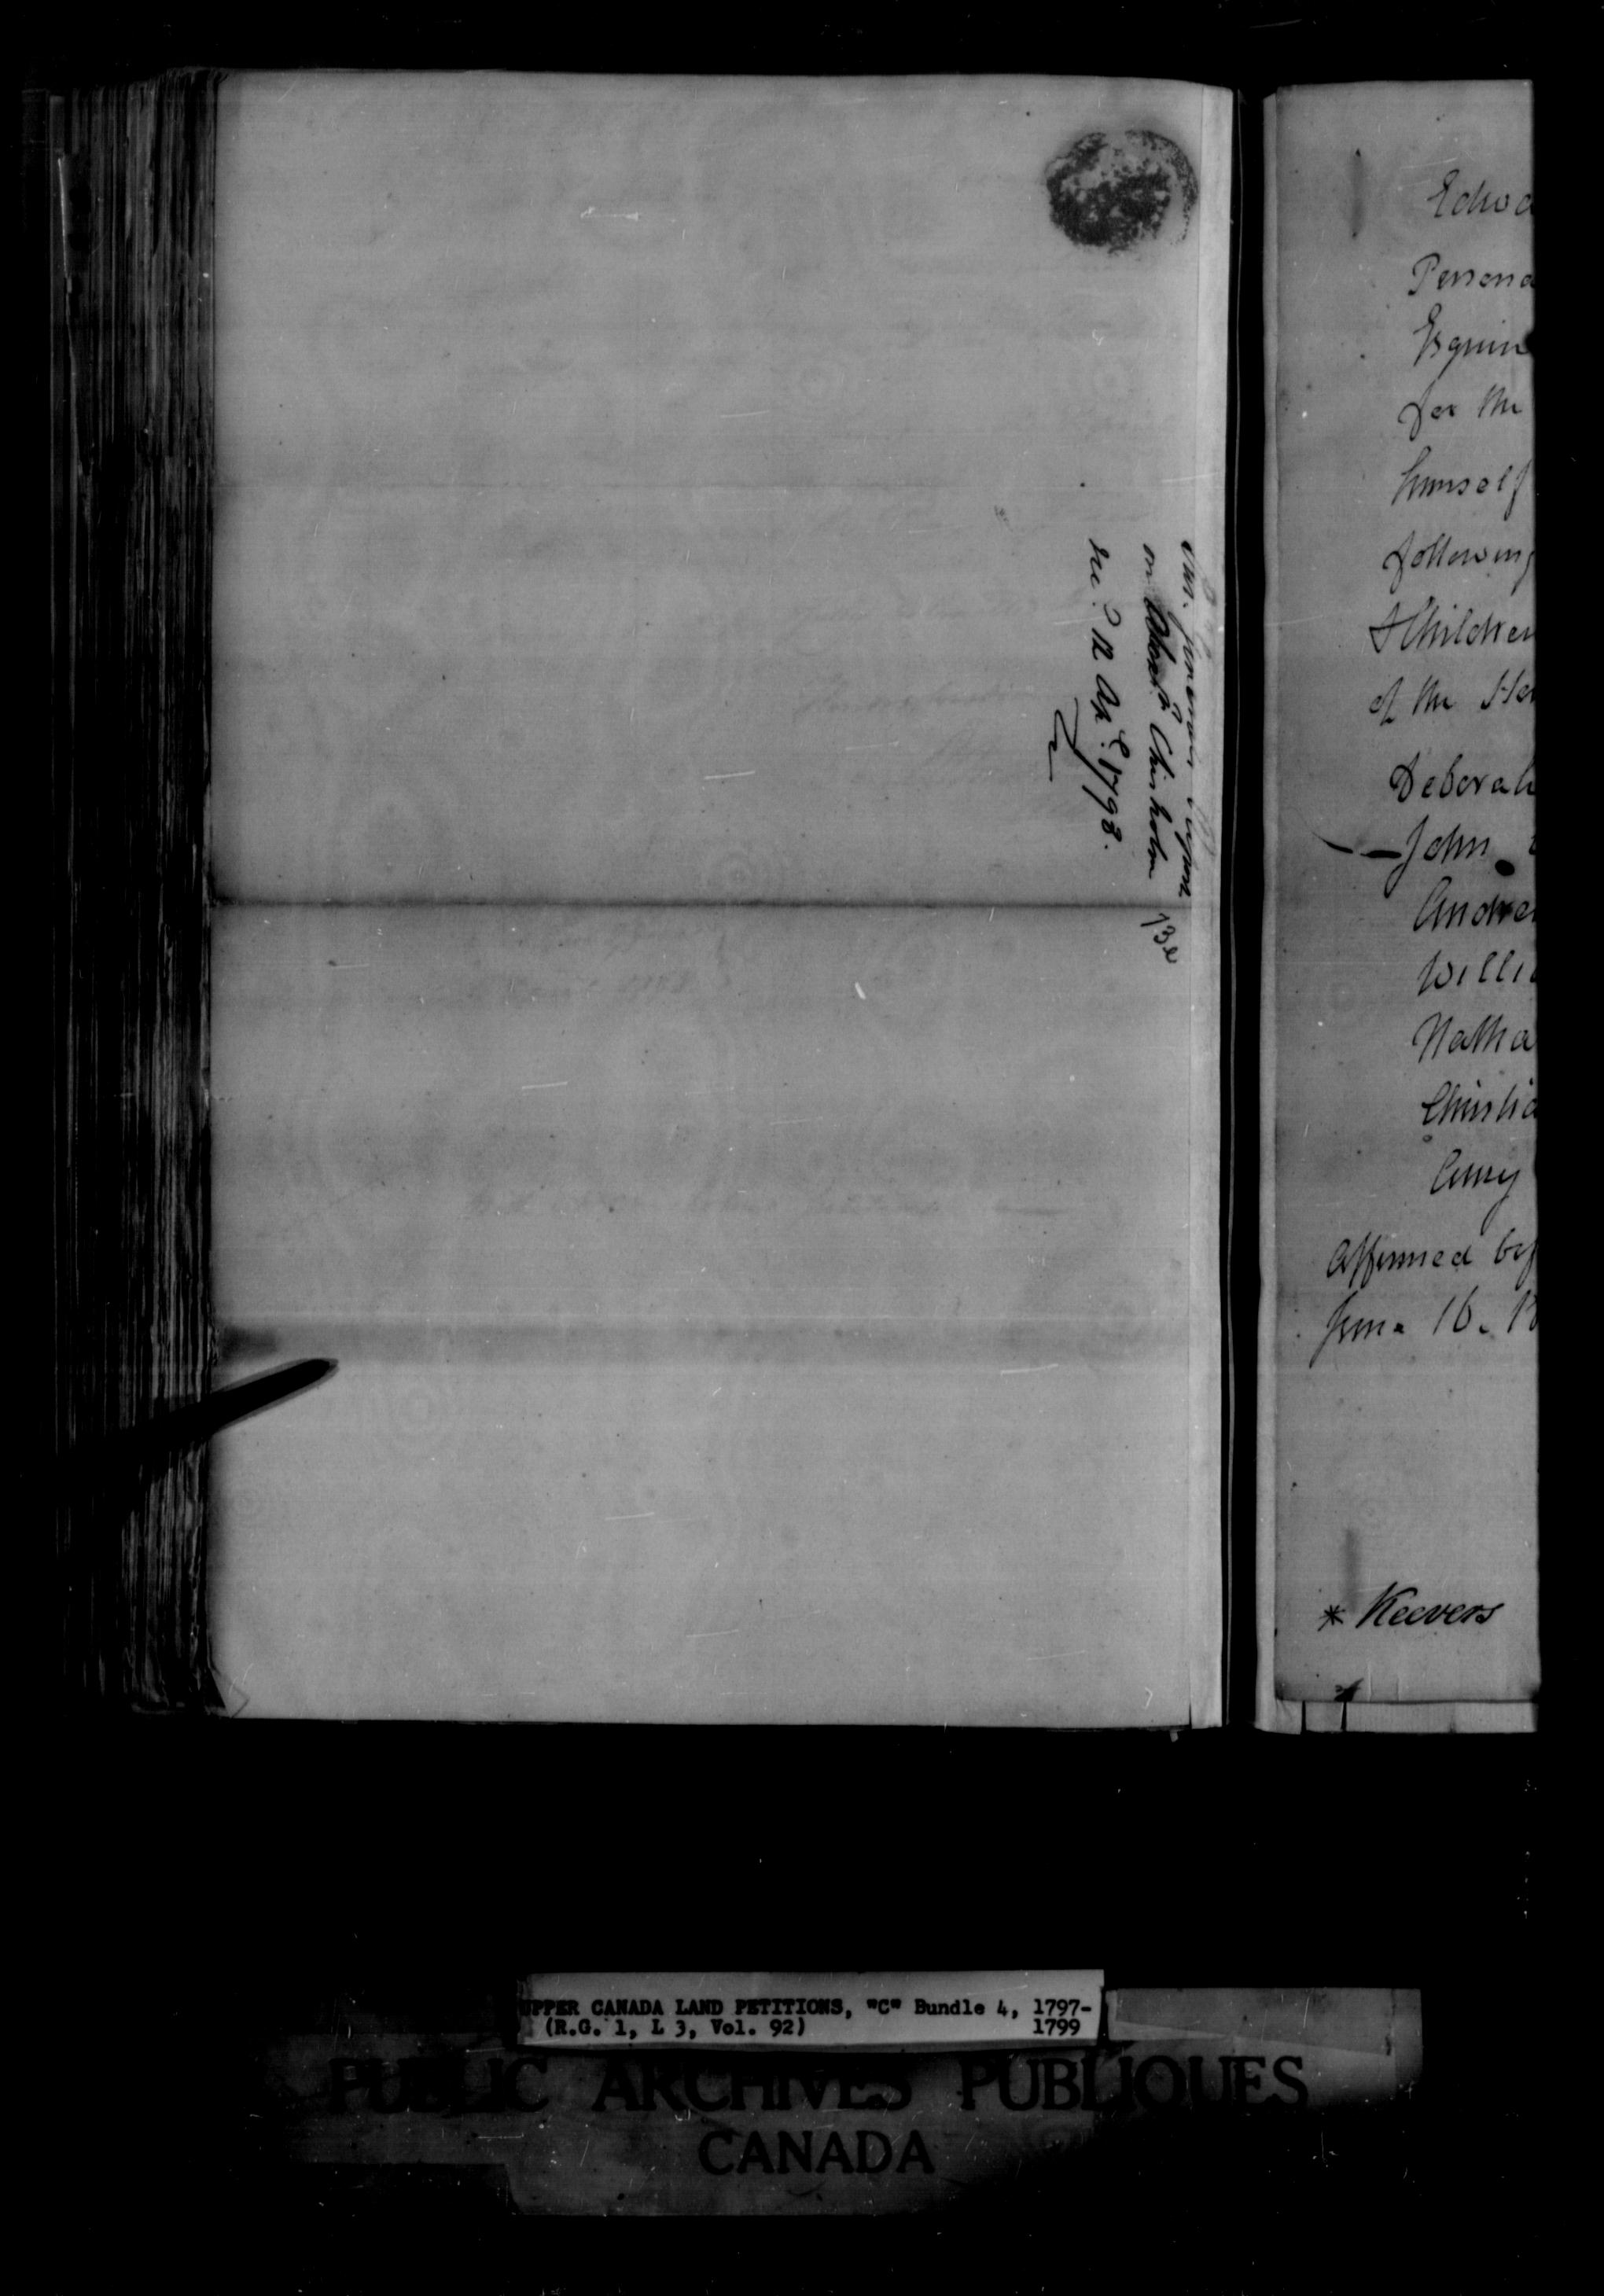 on Chisholm
rec.d 12 Ap.l 1798.
13e
Edwa
Persona
Esquire
for the
himself
following
& Children
of the
Deborah
John
Andre
Willi
Natha
Christia
Amy
Affirmed bef
June 16. 1
* Keevers
UPPER CANADA LAND PETITIONS, "C" Bundle 4, 1797-
(R.G. 1, L 3, Vol. 92) 1799
PUBLIC ARCHIVES PUBLIQUES
CANADA